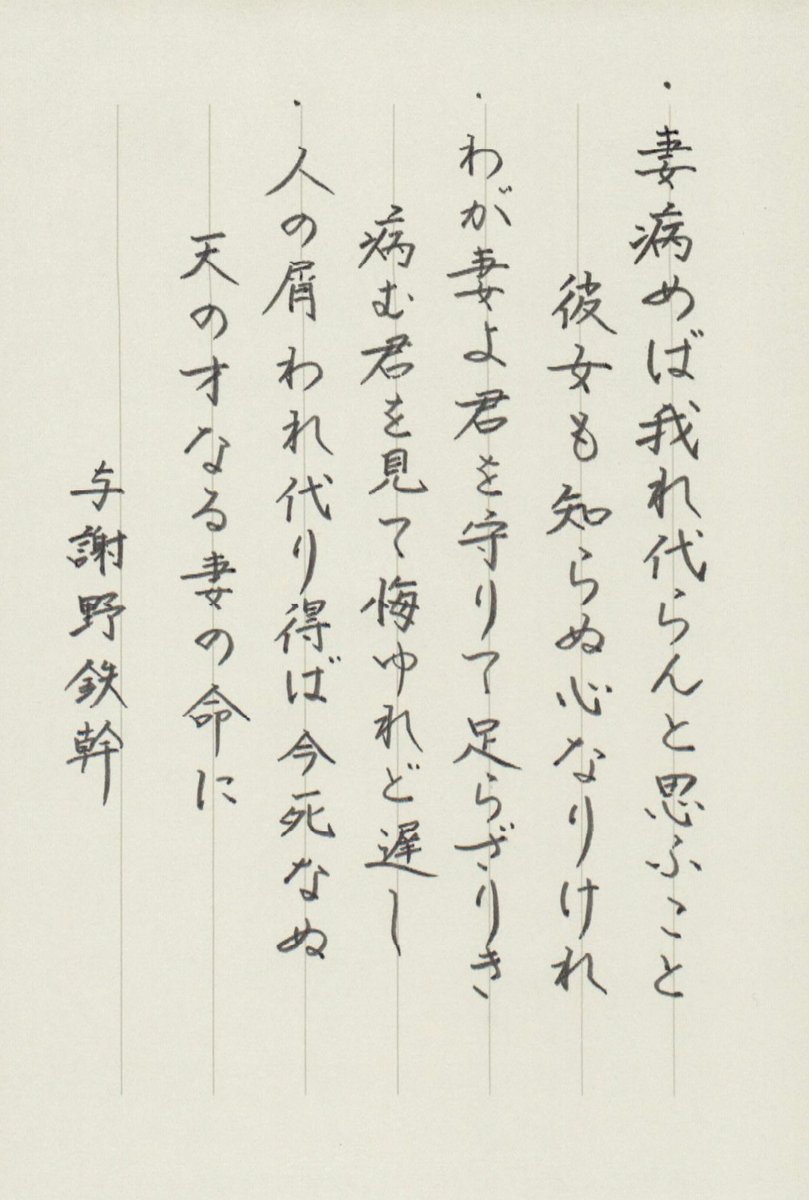 ・妻病めば我れ代らんと思ふこと
彼女も知らぬ心なりけれ
・わが妻よ君を守りて足らざりき
病む君を見て悔ゆれど遅し
・人の屑われ代り得ば今死なぬ
天の才なる妻の命に
与謝野鉄幹